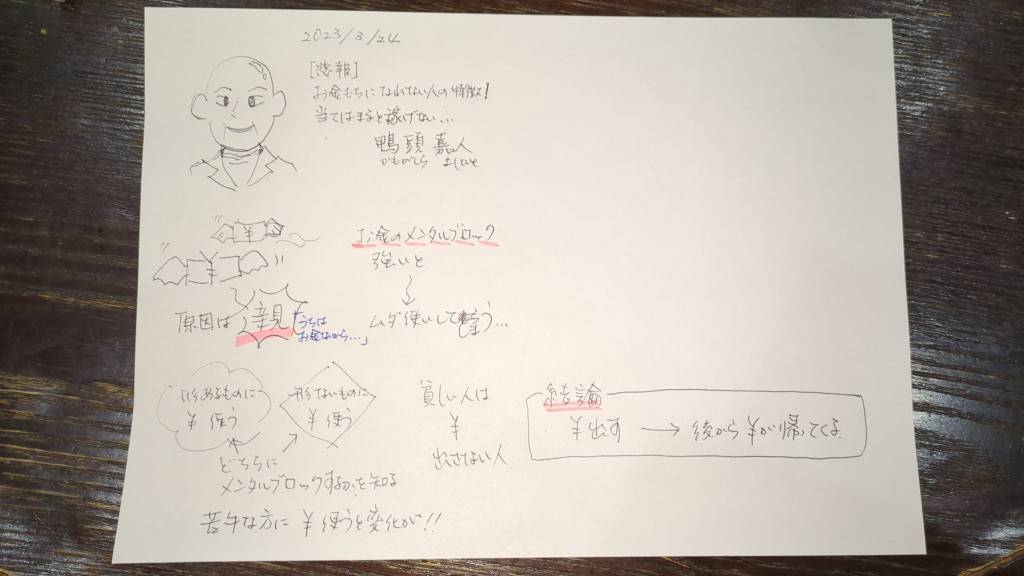 2023/3/24
[悲報]
お金もちになれない人の特徴!
当てはまると稼げない…
鴨頭 嘉人
かもがしら よしひと
¥
¥
お金のメンタルブロック
強いと
ムダ使いして しまう…
原因は 親
「うちは
お金ないから…」
形あるものに
¥ 使う
形ないものに
¥ 使う
どちらに
メンタルブロックするか、を知る
苦手な方に ¥ 使うと変化が!!
貧しい人は
¥
出さない人
結論
¥出す → 後から ¥が帰ってくる